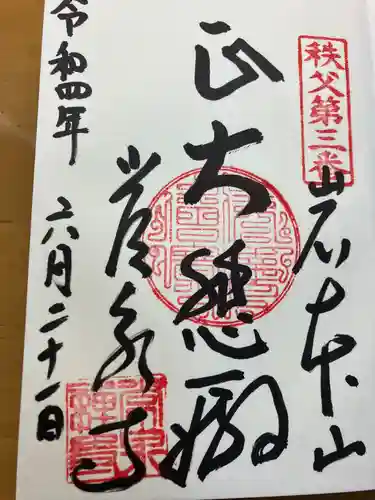 秩父第三番
岩本山
正大悲殿
常泉寺
令和四年 六月二十一日